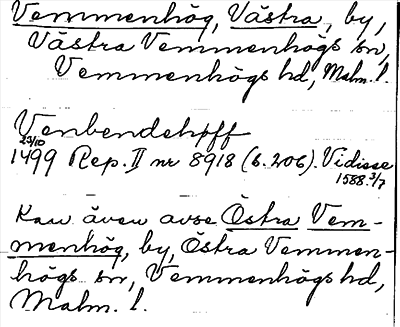 Vemmenhög, Västra, by,
Västra Vemmenhögs sn,
Vemmenhögs hd, Malm. l.
Venbendehøff
23/10
1499 Rep. II nr 8918 (6.206). Vidisse
1588 3/7
Kan även avse Östra Vem-
menhög, by, Östra Vemmen-
högs sn, Vemmenhögs hd,
Malm. l.